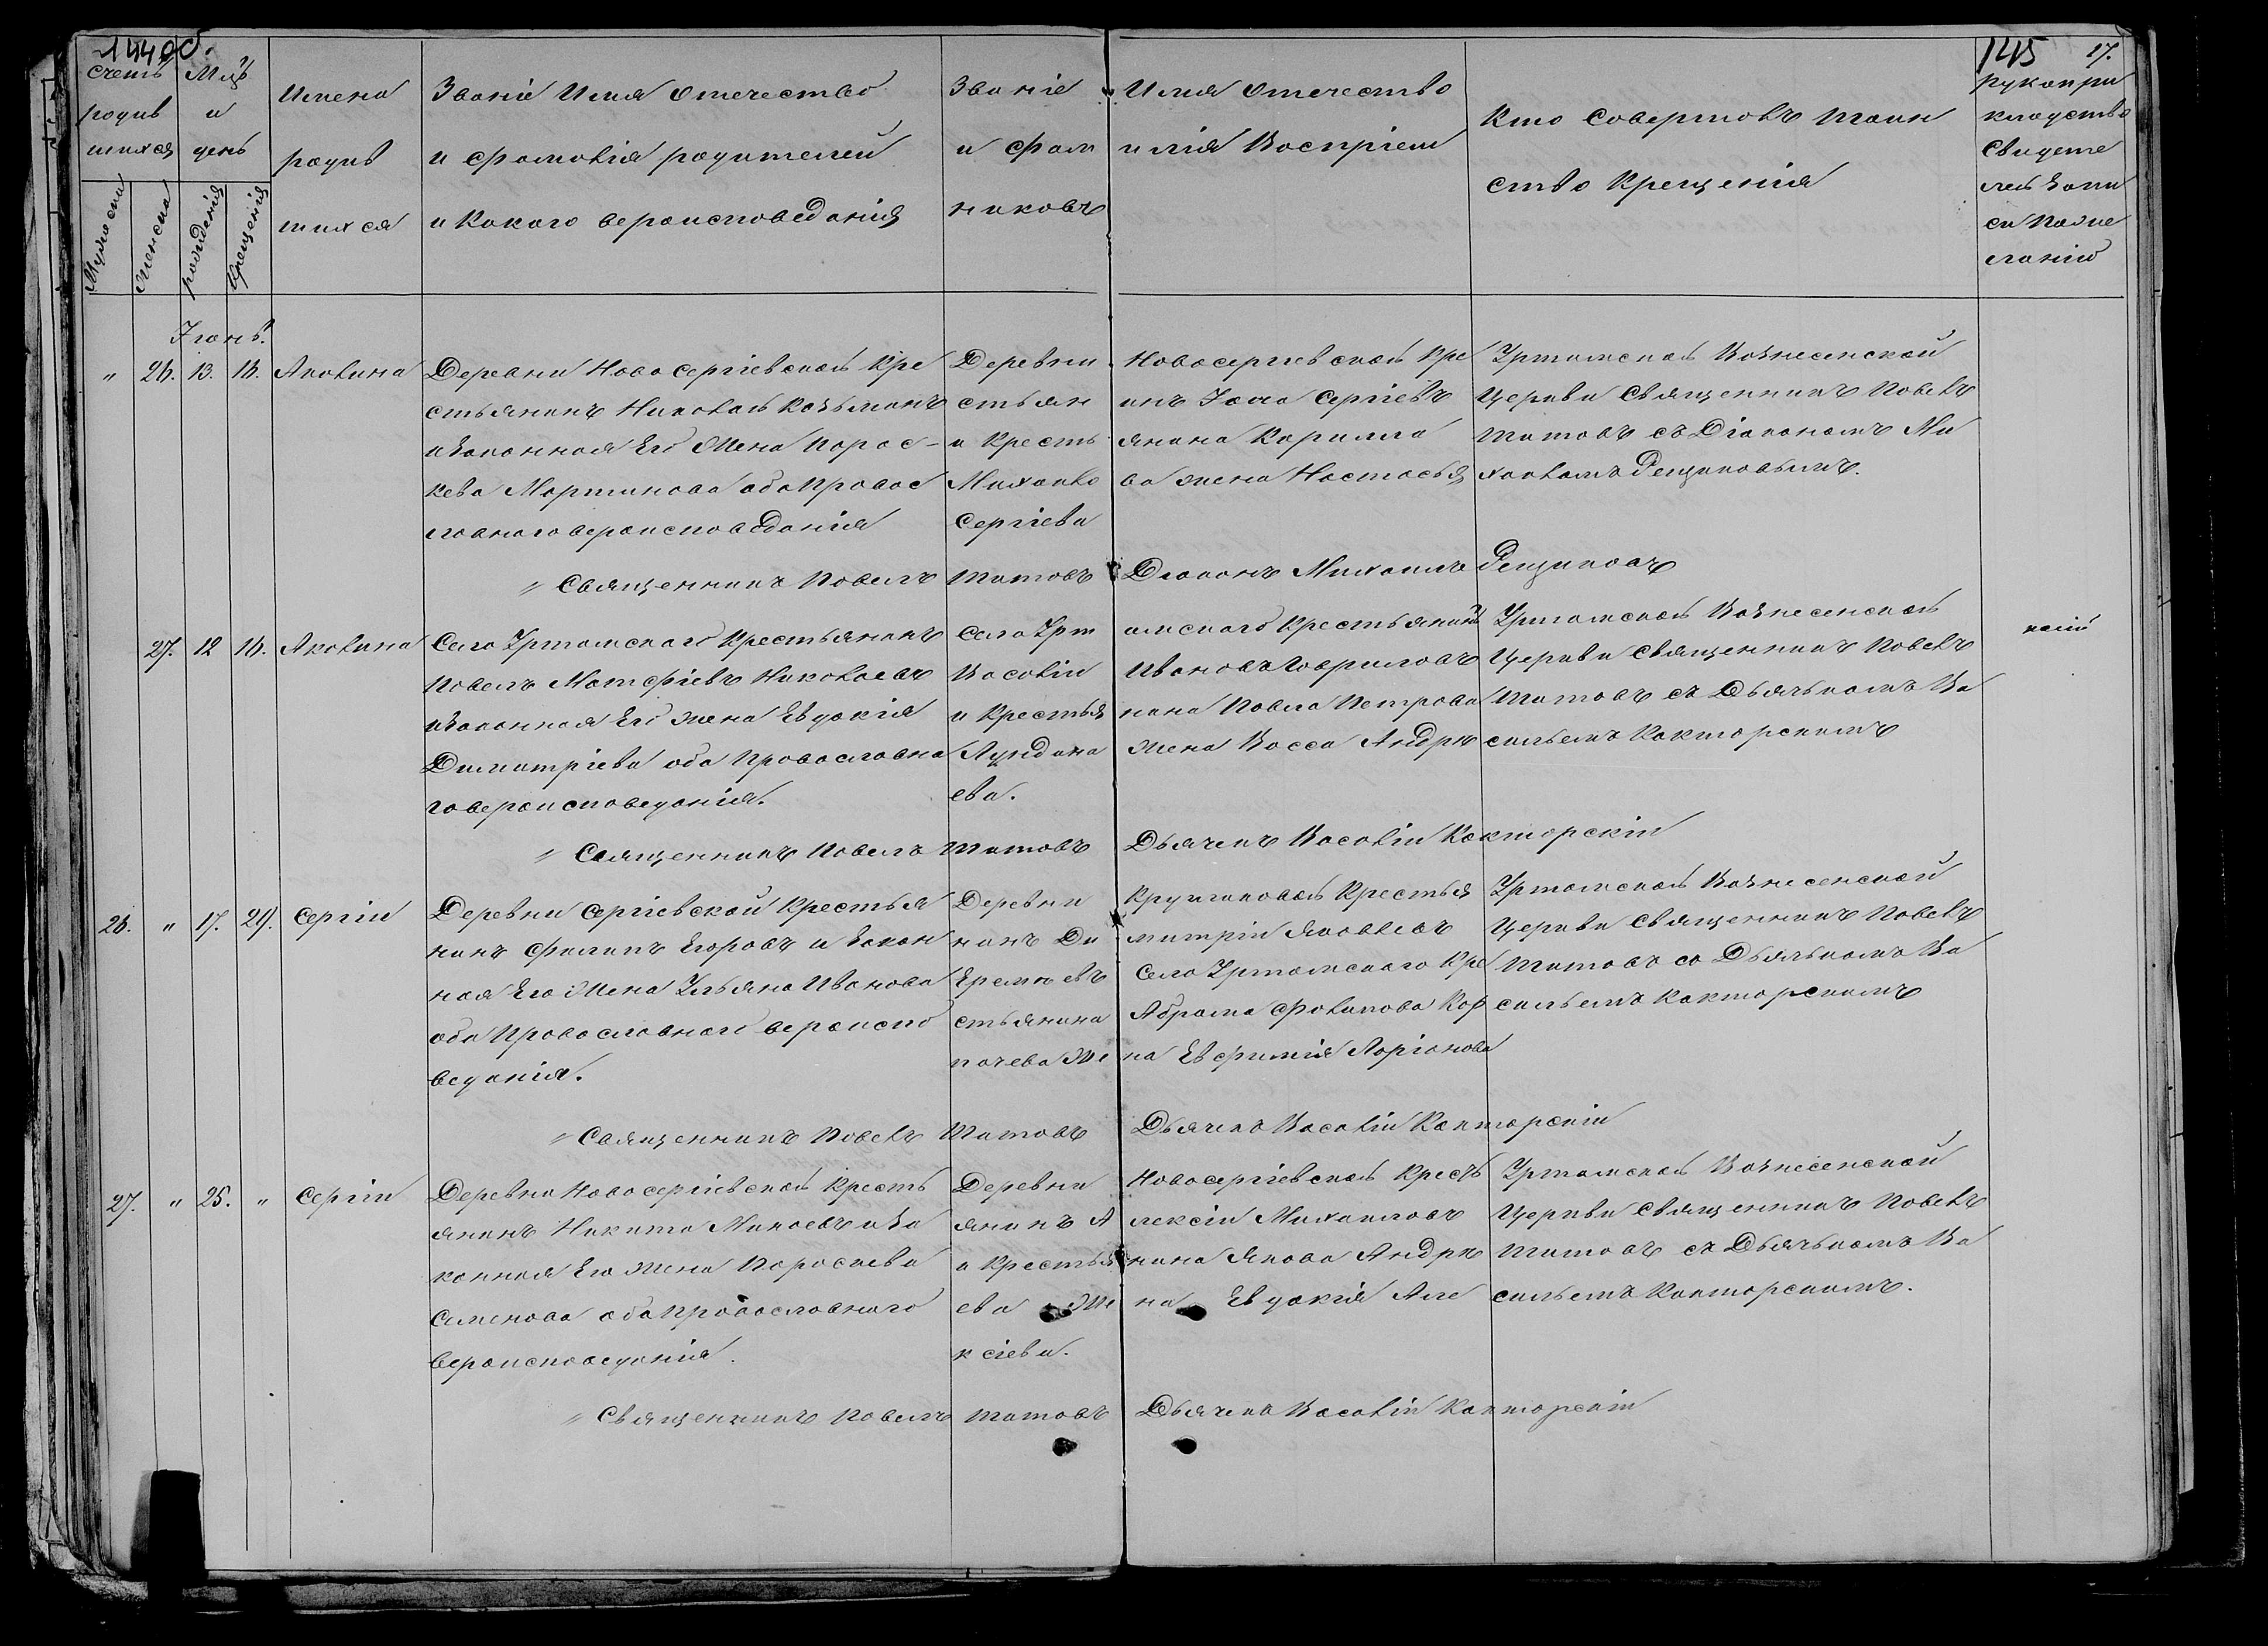 144об.
145 17.
Счетъ родив шихся
Мужеска
Женска
Мцъ и день
рожденія
Крещенія
Имена родив шихся
Званіе Имя Отечество
и фамилія родителей
и Какого вероисповеданія
Званіе Имя Отечество
и Фам илія Воспріем
никовъ
Кто Совершалъ Таин
ство Крещенія
рукопри
кладство
Свидете
лей Запи
си По же
ланію
Іюнь.
" 26. 13. 18. Акилина
Деревни Новосергіевской Кре
стьянинъ Николай Козьминъ
и Законная Его Жена Парас-
кева Мартинова оба Правос
лавнаго вероисповеданія
Деревни Новосергіевской Кре
стьян инъ Іона Сергіевъ
и Кресть янина Кирила
Михайло ва жена Настасья
Сергіева
Уртамской Вознесенской
Церкви Священникъ Павелъ
Титовъ съ Діакономъ Ми
хаиломъ Рещиковымъ.
" Священникъ Павелъ Титовъ Діаконъ Михаилъ Рещиковъ
27. 12 18. Акилина
Села Уртамскаго Крестьянинъ
Павелъ Матфіевъ Николаевъ
и Законная Его жена Евдокія
Димитріева оба Православна
го вероисповеданія.
Села Урт амскаго Крестьянинъ
Василій Ивановъ Гавриловъ
и Крестья нина Павла Петрова
жена Васса Андре
ева.
Уртамской Вознесенской
Церкви Священникъ Павелъ
Титовъ съ Дьячкомъ Ва
сильемъ Кокторскимъ
" Священникъ Павелъ Титовъ Дьячекъ Василій Кокторскій
26. " 17. 29. Сергій
Деревни Сергіевской Крестья
нинъ Филипъ Егоровъ и Закон
ная Его Жена Ульяна Иванова
оба Православнаго вероиспо
веданія.
Деревни Крестья
нинъ Ди митрій Яковлевъ
Еремѣевъ Села Уртамскаго Кре
стьянина Абрама
Же на Евфимія Ларіонова
Уртамской Вознесенской
Церкви Священникъ Павелъ
Титовъ со Дьячкомъ Ва
сильемъ Кокторскимъ
" Священникъ Павелъ Титовъ Дьячекъ Василій Кокторскій
27. " 25. " Сергій
Деревни Новосергіевской Кресть
янинъ Никита Минаевъ и За
конная Его жена Параскева
Семенова оба Православнаго
Вероисповеданія.
Деревни Новосергіевской Кресть
янинъ А лексій Михаиловъ
и Крестья нина Якова Андре
ева Же на Евдокія Але
ксіева.
Уртамской Вознесенской
Церкви Священникъ Павелъ
Титовъ съ Дьячкомъ Ва
сильемъ Кокторскимъ.
" Священникъ Павелъ Титовъ Дьячекъ Василій Кокторскій